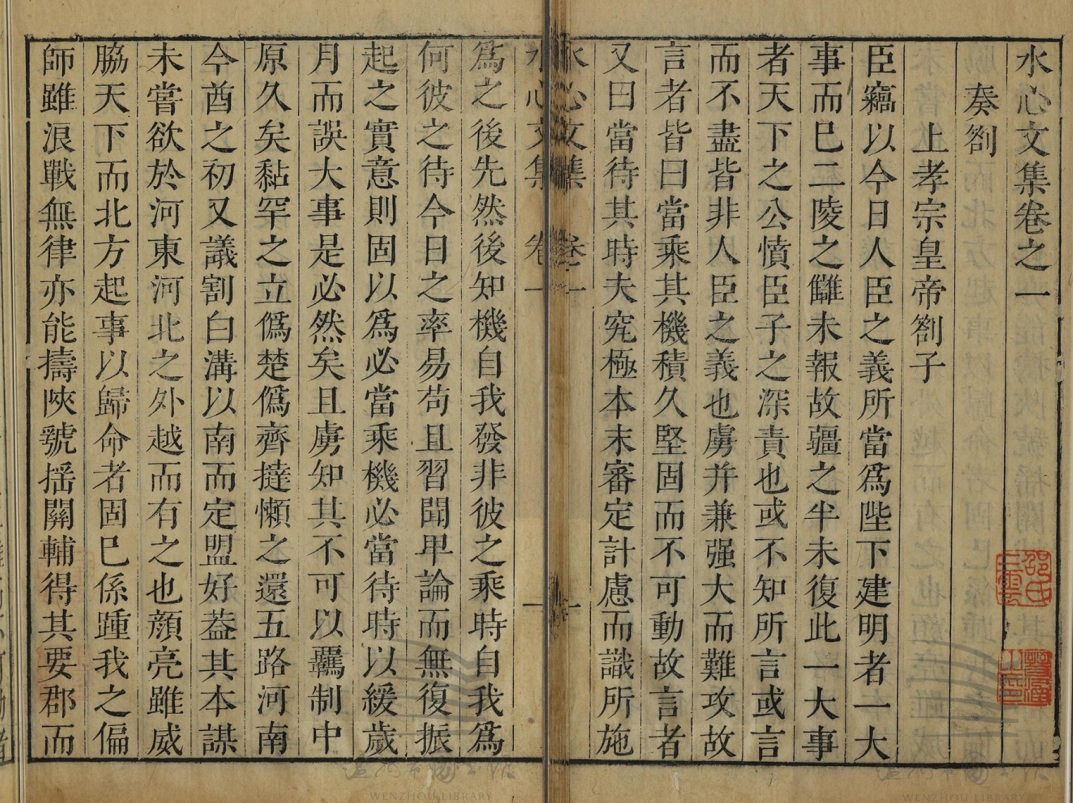 水心文集卷之一
奏劄
上孝宗皇帝劄子
臣竊以今日人臣之義所當爲陛下建明者一大
事而已二陵之讎未報故疆之半未復此一大事
者天下之公憤臣子之深責也或不知所言或言
而不盡皆非人臣之義也虜并兼强大而難攻故
言者皆曰當乘其機積久堅固而不可動故言者
又曰當待其時夫究極本末審定計慮而識所施
水心文集 卷一 一
水心文集 卷一 一
爲之後先然後知機自我發非彼之乘時自我爲
何彼之待今日之率易苟且習聞卑論而無復振
起之實意則固以爲必當乘機必當待時以緩歲
月而誤大事是必然矣且虜知其不可以羈制中
原久矣黏罕之立僞楚僞齊撻懶之還五路河南
今酋之初又議割白溝以南而定盟好葢其本謀
未嘗欲於河東河北之外越而有之也顔亮雖威
脇天下而北方起事以歸命者固已係踵我之偏
師雖浪戰無律亦能擣陜虢揺關輔得其要郡而
WENZHOU LIBRARY
WENZHOU LIBRARY